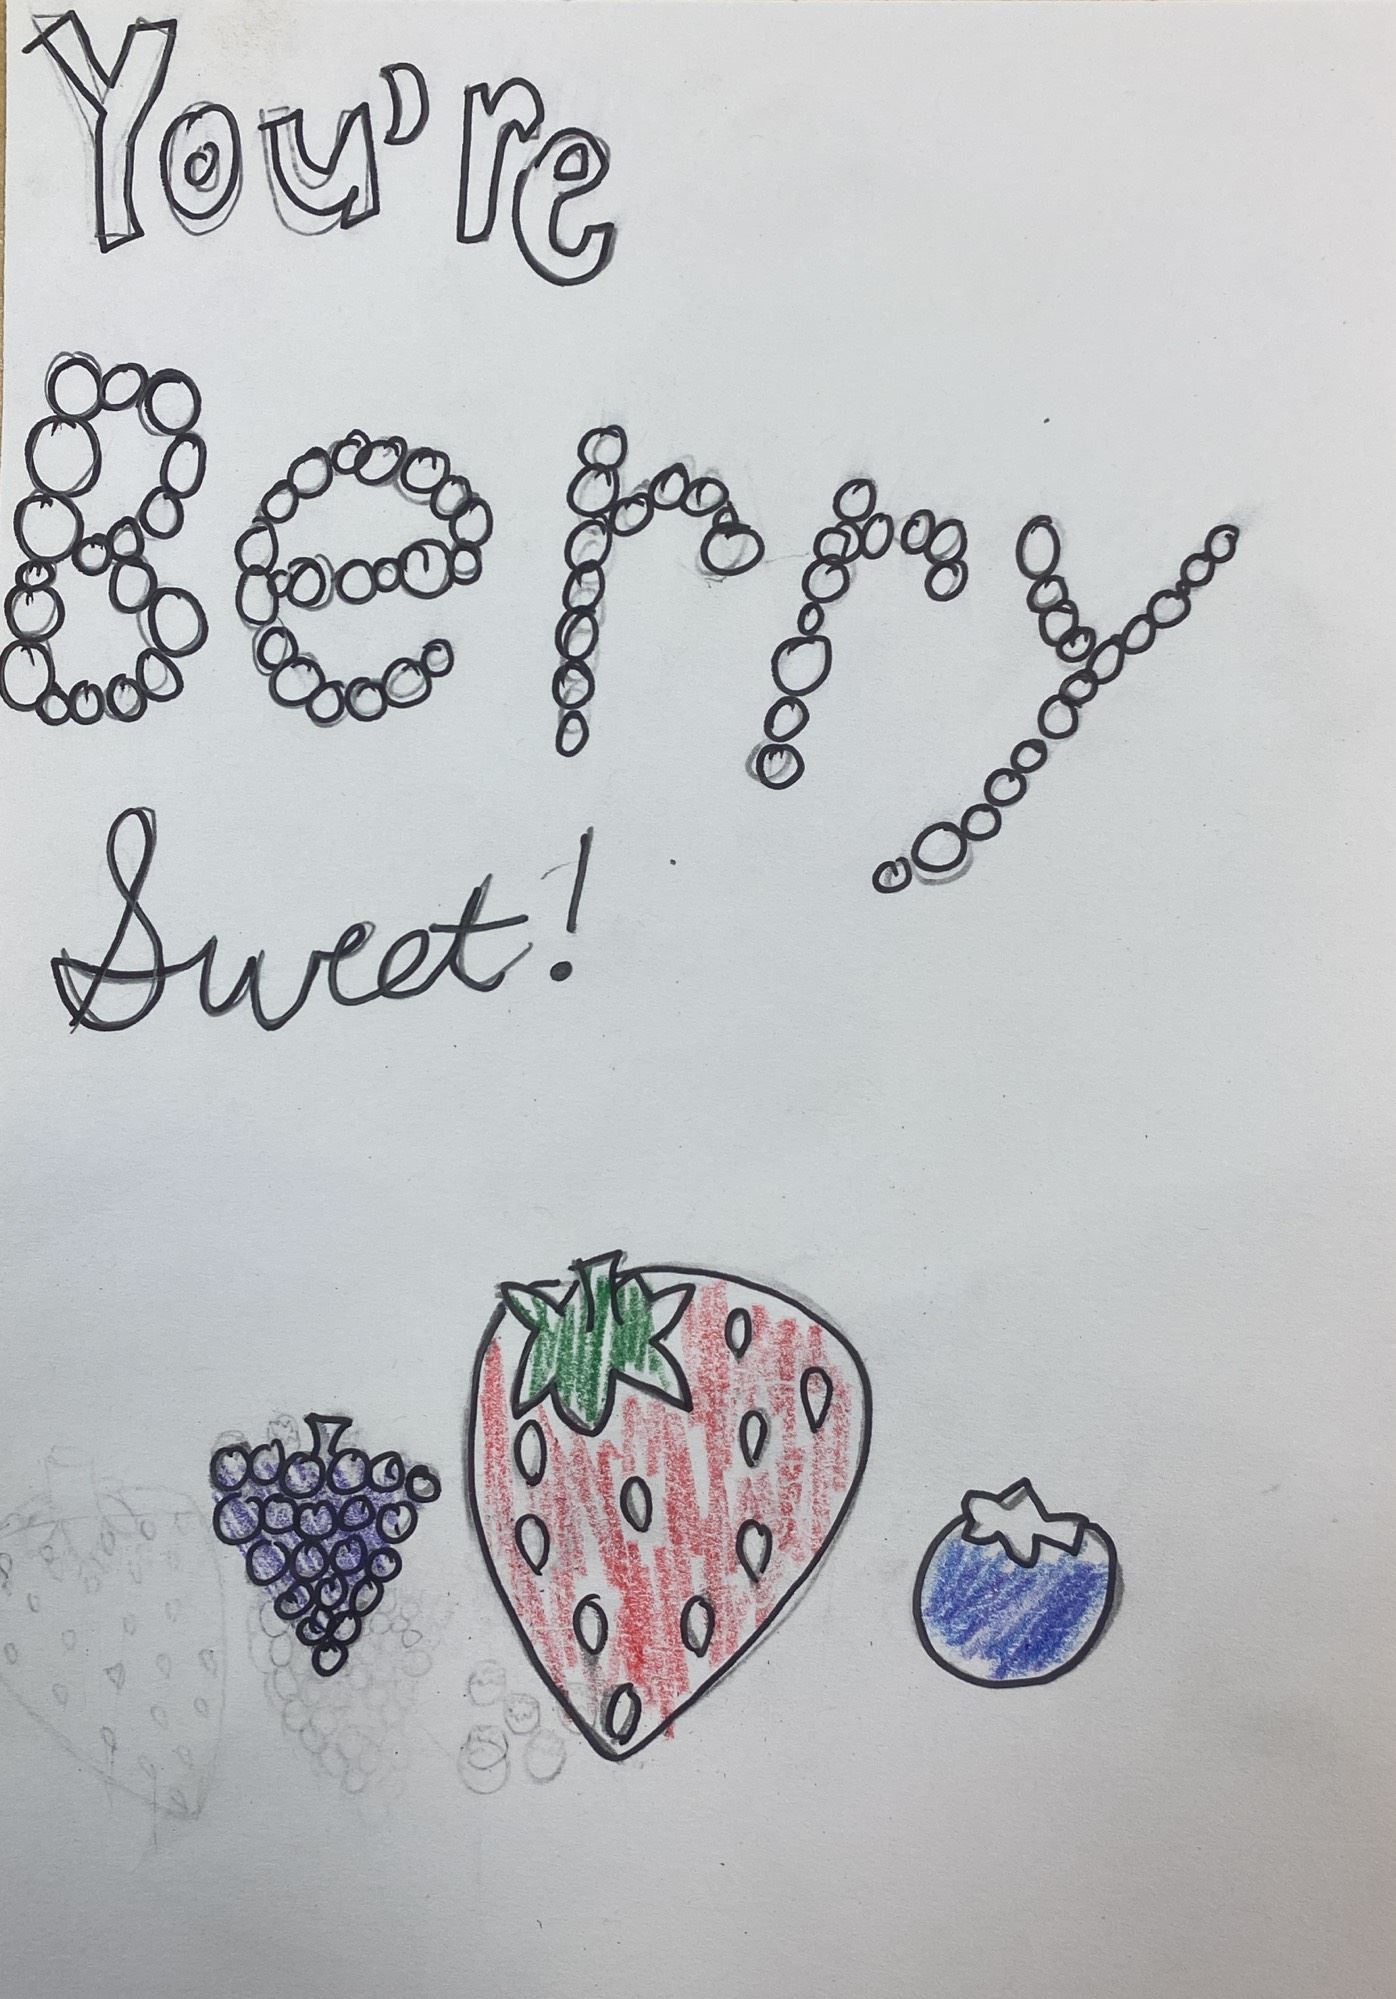 You're
Berry
Sweet!